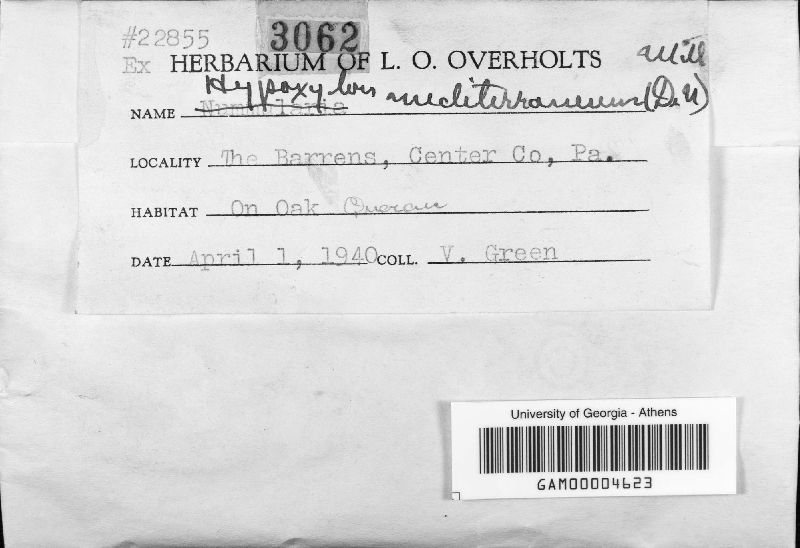 #22855 3062
Ex HERBARIUM OF L. O. OVERHOLTS
NAME Nummularia Hypoxylon mediterraneum (De N) Mill
LOCALITY The Barrens, Center Co, Pa.
HABITAT On Oak Quercus
DATE April 1, 1940 COLL. V. Green
University of Georgia - Athens
GAM00004623